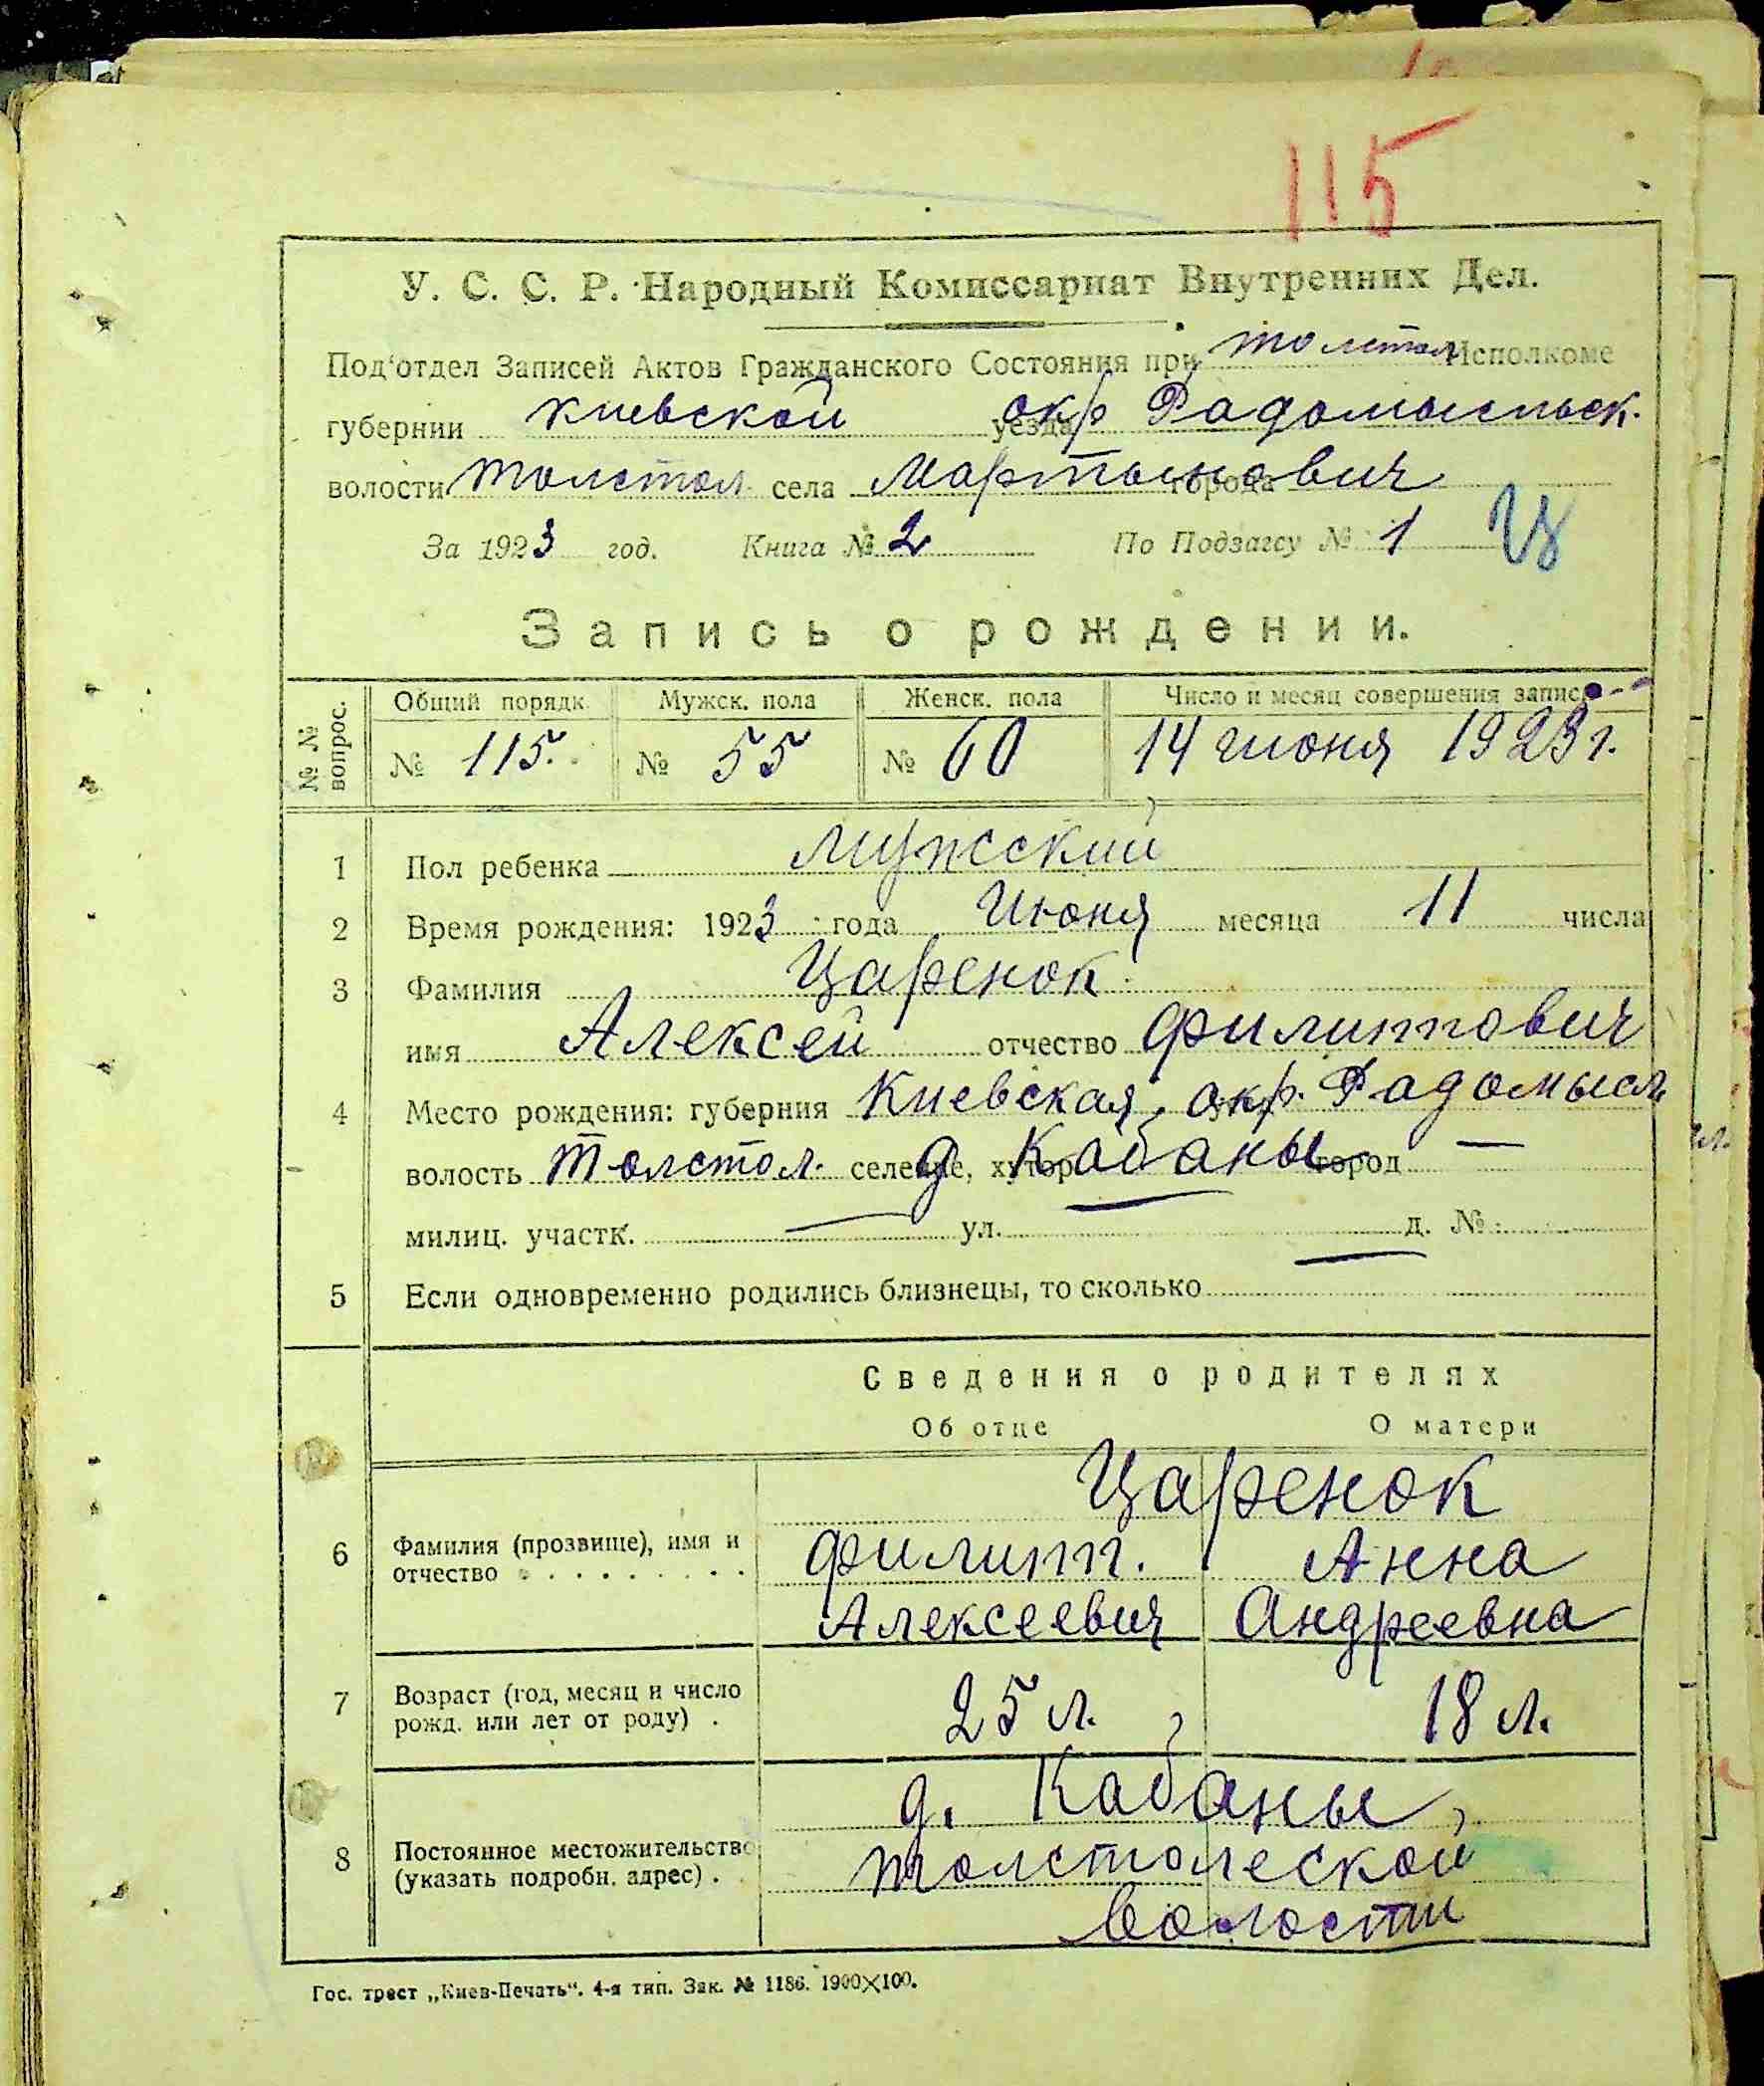 115
У. С. С. Р. Народный Комиссариат Внутренних Дел.
Под'отдел Записей Актов Гражданского Состояния при Толстол Исполкоме
губернии Киевской уезда окр Радомысльск.
волости Толстол. села Мартынович города
За 1923 год. Книга № 2 По Подзагсу № 1 Ц
Запись о рождении.
№ № вопрос. Общий порядк. Мужск. пола Женск. пола Число и месяц совершения записи
№ 115. № 55 № 60 14 июня 1923 г.
1 Пол ребенка мужский
2 Время рождения: 1923 года Июня месяца 11 числа
3 Фамилия Царенок
имя Алексей отчество Филиппович
4 Место рождения: губерния Киевская, окр. Радомысл
волость Толстол. селение, хутор д Кабаны город —
милиц. участк. — ул. — д. № —
5 Если одновременно родились близнецы, то сколько
Сведения о родителях
Об отце О матери
Царенок
6 Фамилия (прозвище), имя и Филипп. Анна
отчество Алексеевич Андреевна
7 Возраст (год, месяц и число 25 л. 18 л.
рожд. или лет от роду) .
д. Кабаны,
8 Постоянное местожительство Толстолеской
(указать подробн. адрес) . волости
Гос. трест „Киев-Печать“. 4-я тип. Зак. № 1186. 1900×100.